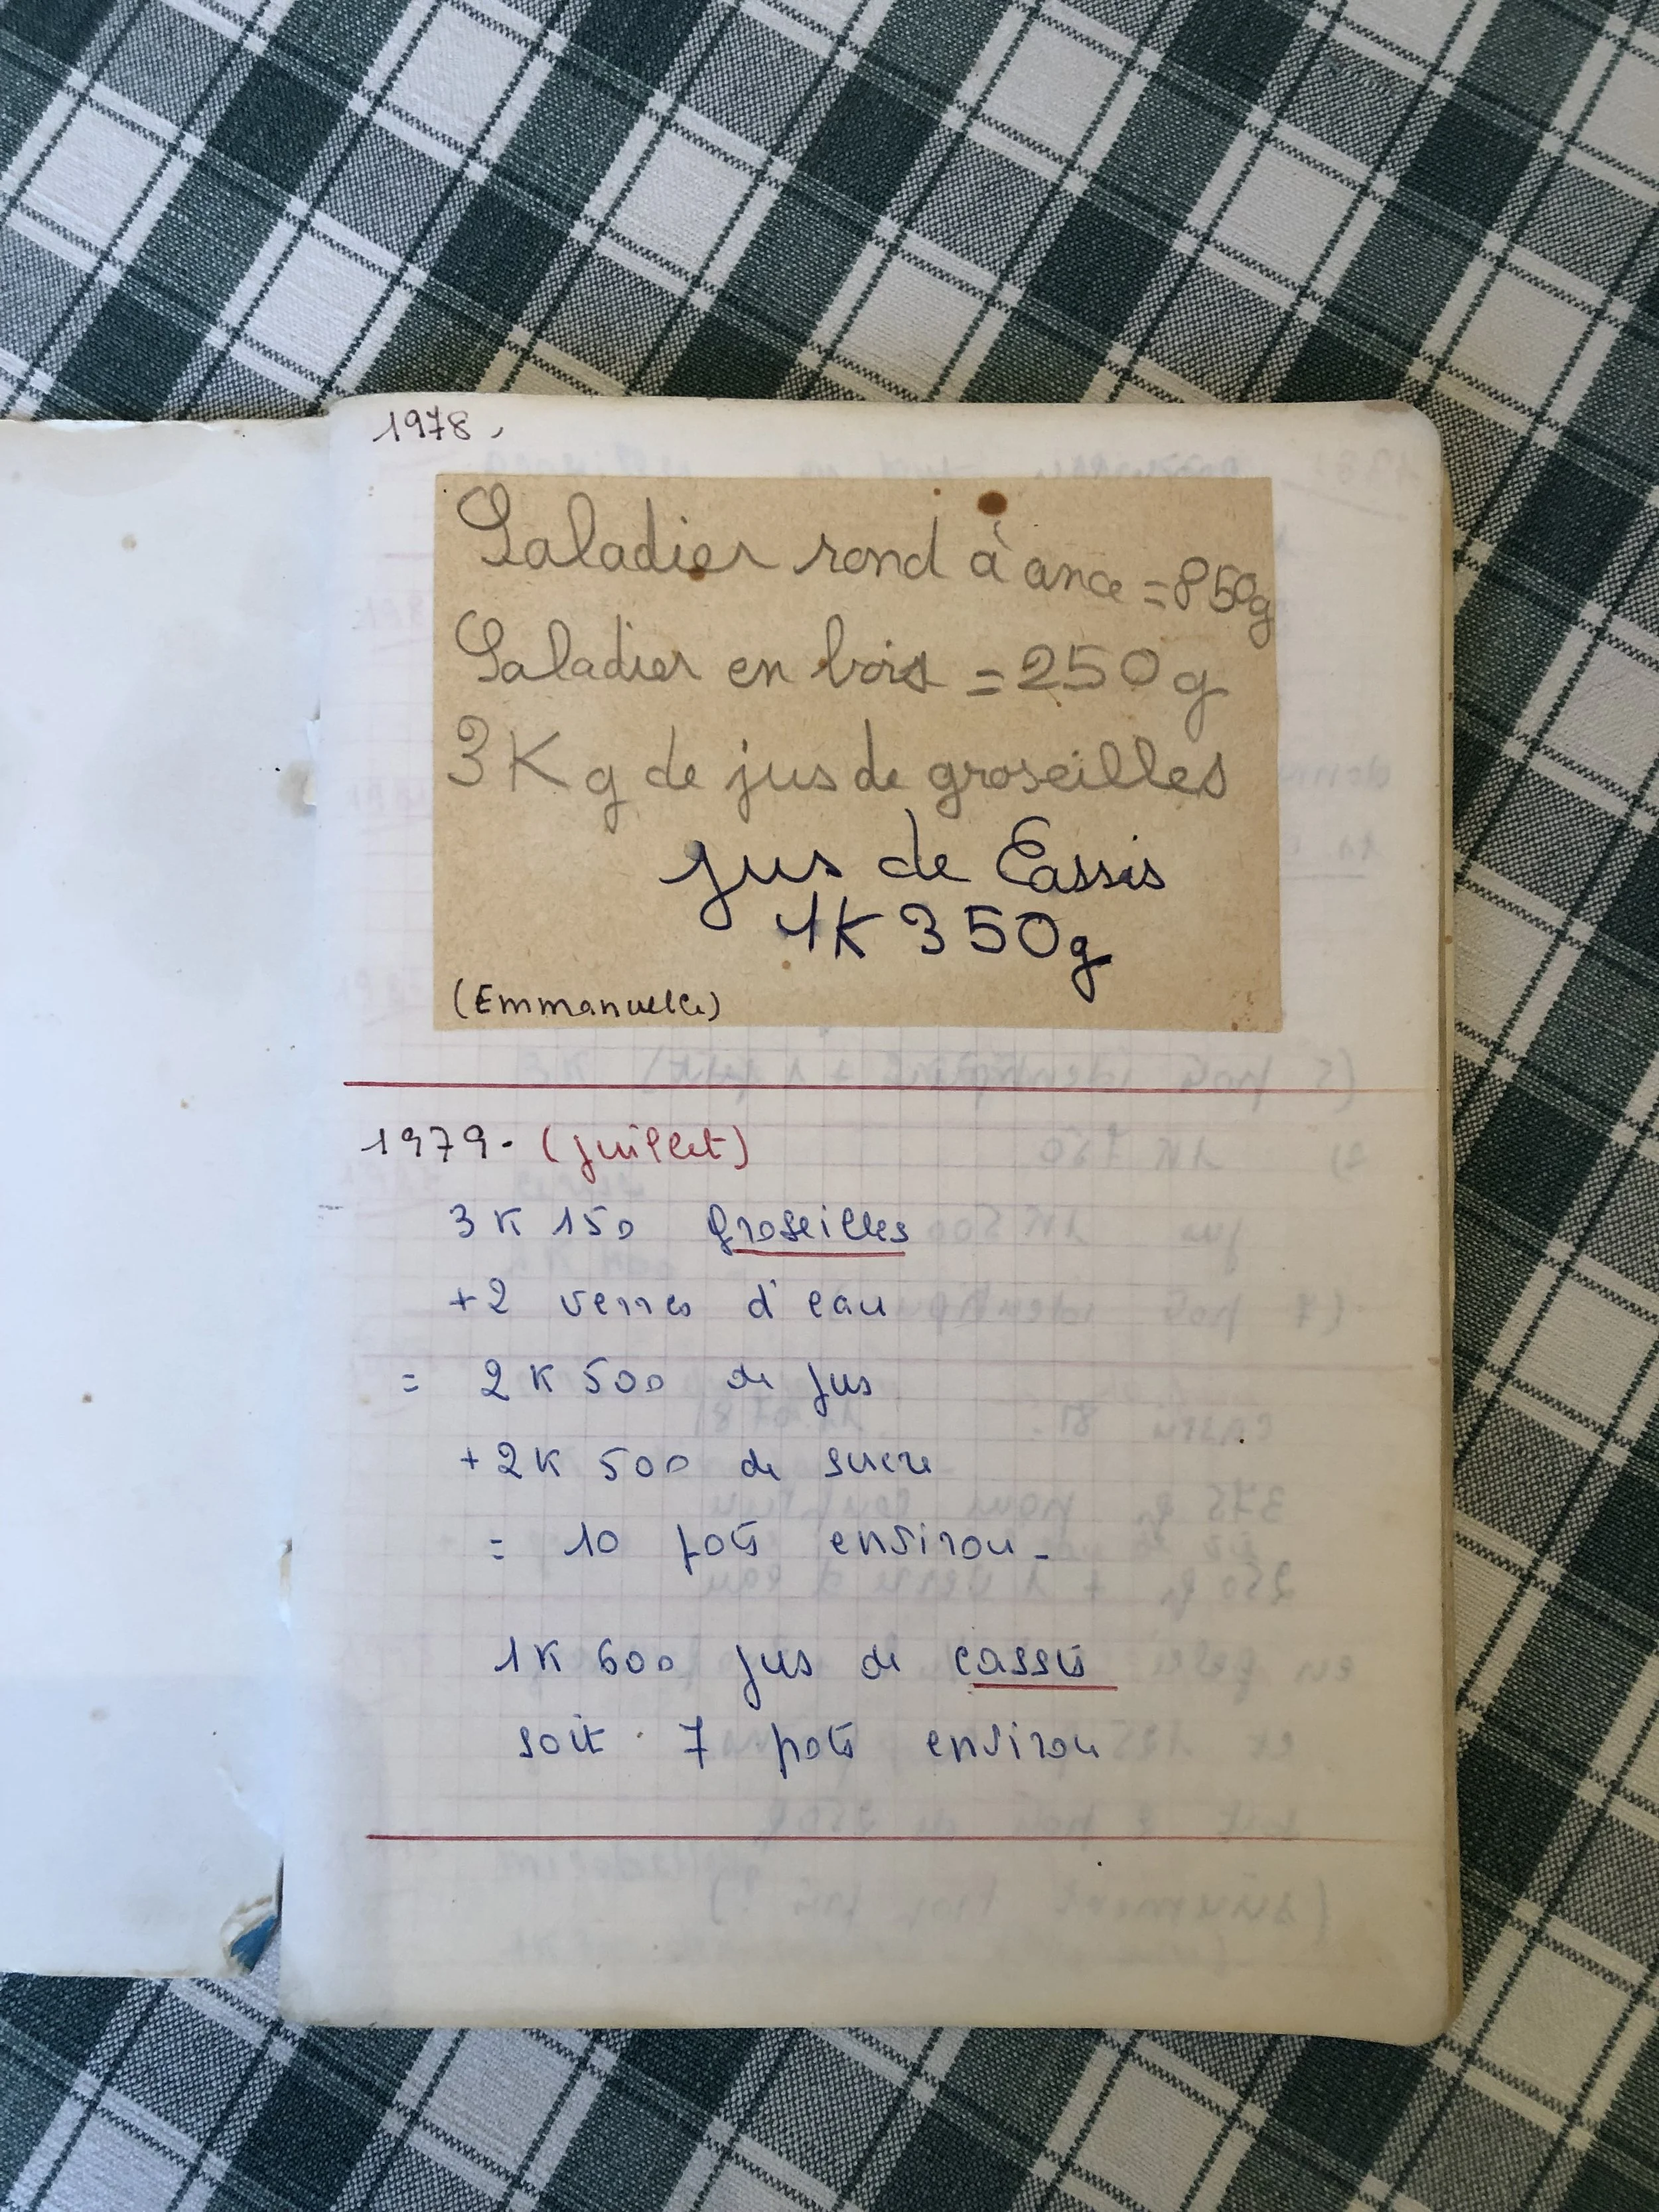 1978.
Saladier rond à ance = 850g
Saladier en bois = 250g
3Kg de jus de groseilles
jus de Cassis
1K 350g
(Emmanuelle)
1979. (juillet)
3K 150 groseilles
+2 verres d'eau
= 2K 500 de jus
+2K 500 de sucre
= 10 pots environ-
1K 600 jus de cassis
soit 7 pots environ